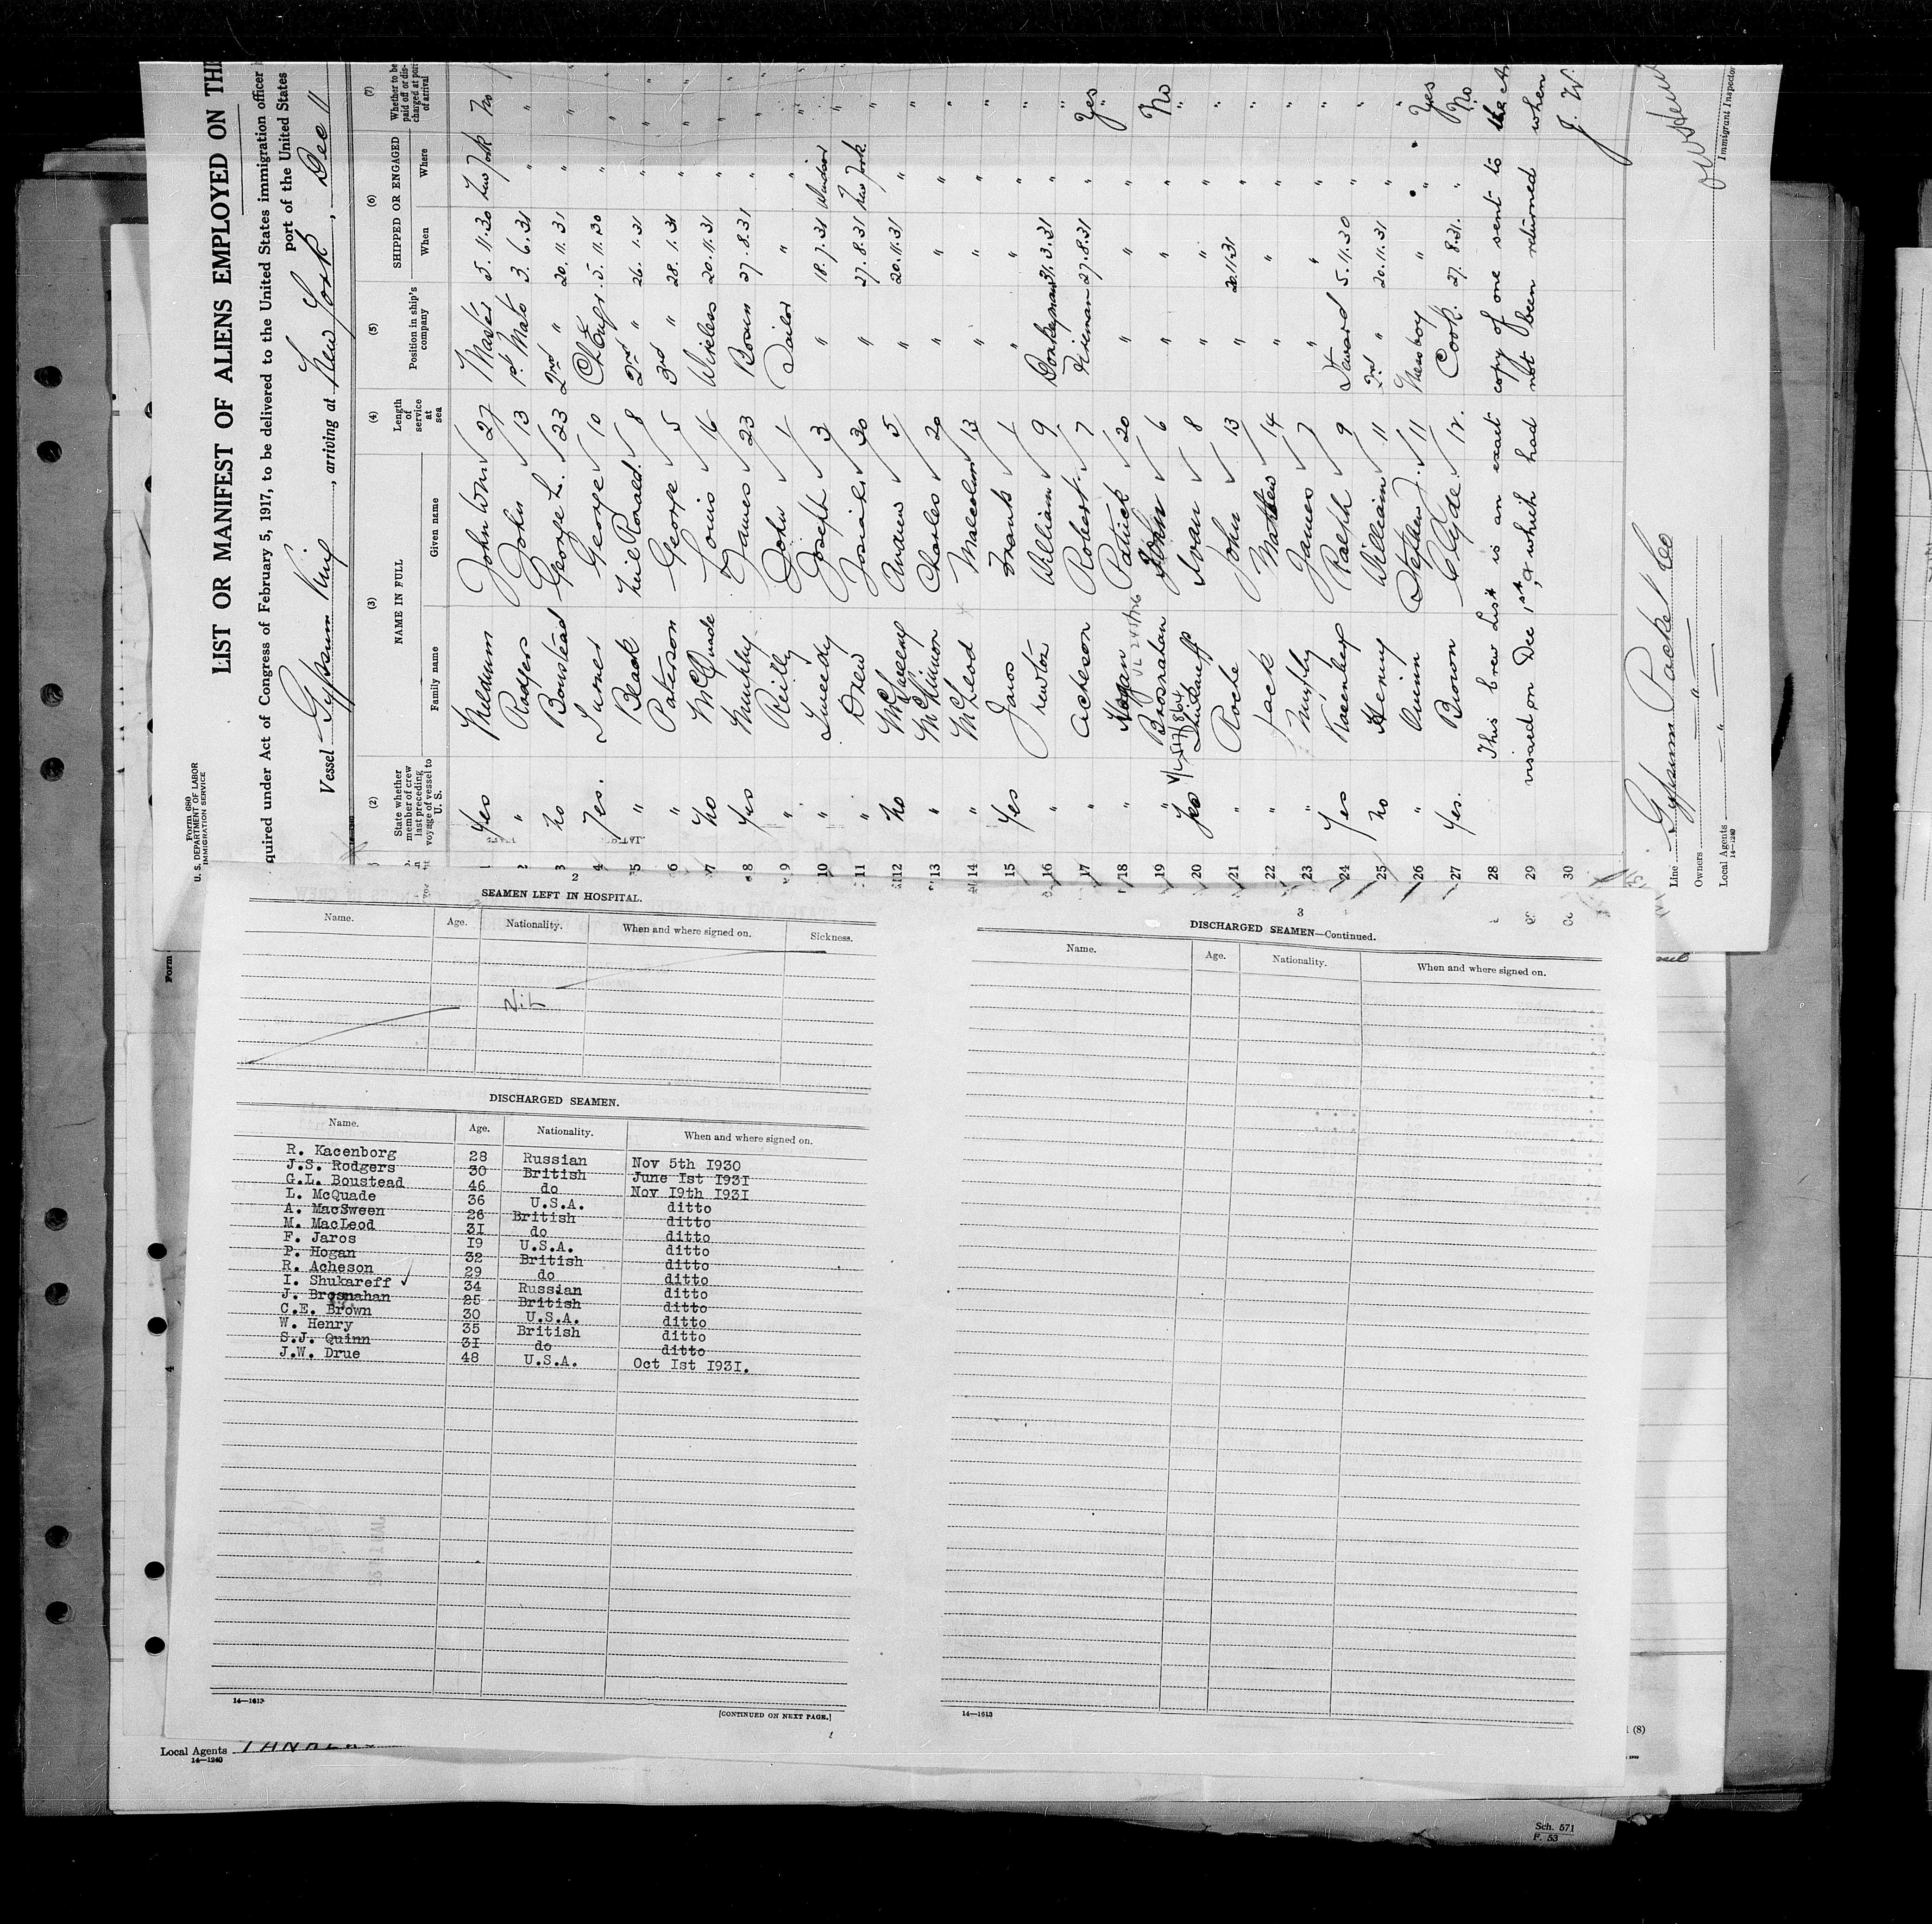 Form 680
U. S. DEPARTMENT OF LABOR
IMMIGRATION SERVICE
LIST OR MANIFEST OF ALIENS EMPLOYED ON THE
quired under Act of Congress of February 5, 1917, to be delivered to the United States immigration officer
port of the United States
Vessel Gypsum King, arriving at New York, Dec 11
(2) (3) (4) (5) (6) (7)
State whether member of crew last preceding voyage of vessel to U. S.
NAME IN FULL
Family name Given name
Length of service at sea
Position in ship's company
SHIPPED OR ENGAGED
When Where
Whether to be paid off or discharged at port of arrival
1 Yes John Wm 27 Master 5.11.30 New York No
2 " Rodgers John 13 1st Mate 3.6.31 " "
3 no Boustead George L. 23 2nd " 20.11.31 " "
4 Yes. Turner George 10 Ch Engr. 5.11.30 " "
5 " Black Neil Ronald. 8 2nd " 26.1.31 " "
6 " Paterson George 5 3rd " 28.1.31 " "
7 no McQuade Louis 16 Wireless 20.11.31 " "
8 Yes Murphy James 23 Bosun 27.8.31 " "
9 " Reilly John 1 Sailor " " "
10 " Tweedy Joseph 3 " 18.7.31 Windsor "
11 " Drew Josiah 30 " 27.8.31 New York "
12 no McSweeny 5 " 20.11.31 " "
13 " McKinnon Charles 20 " " " "
14 " McLeod Malcolm 13 " " " "
15 Yes Jaros Frank 1 " " " "
16 " Newton William 9 Donkeyman 31.3.31 " "
17 " Acheson Robert. 7 Fireman 27.8.31 " Yes
18 " Hogan Patrick 20 " " " "
19 " Brosnahan John 6 " " " No
20 Yes Shukareff Ivan 8 " " " "
21 " Roche John 13 " 20.11.31 " "
22 " Jack Matthew 14 " " " "
23 " Murphy James 7 " " " "
24 Yes Kacenberg Ralph 9 Steward 5.11.30 " "
25 no Henry William 11 2nd " 20.11.31 " "
26 " Quinn Stephen J. 11 Messboy " " Yes
27 Yes. Brown Clyde. 12. Cook. 27.8.31. " No
28 This Crew List is an exact copy of one sent to the
29 vissed on Dec 1st, & which had not been returned when
30 J. W.
Line Gypsum Packet Co
Owners " "
Local Agents " "
14—1240
Immigrant Inspector
2
SEAMEN LEFT IN HOSPITAL.
Name. Age. Nationality. When and where signed on. Sickness.
Nil
DISCHARGED SEAMEN.
Name. Age. Nationality. When and where signed on.
R. Kacenborg 28 Russian Nov 5th 1930
J.S. Rodgers 30 British June 1st 1931
G.L. Boustead 46 do Nov 19th 1931
L. McQuade 36 U.S.A. ditto
A. MacSween 26 British ditto
M. MacLeod 31 do ditto
F. Jaros 19 U.S.A. ditto
P. Hogan 32 British ditto
R. Acheson 29 do ditto
I. Shukareff 34 Russian ditto
J. Brosnahan 25 British ditto
C.E. Brown 30 U.S.A. ditto
W. Henry 35 British ditto
S.J. Quinn 31 do ditto
J.W. Drue 48 U.S.A. Oct 1st 1931.
14—1613
[CONTINUED ON NEXT PAGE.]
3
DISCHARGED SEAMEN—Continued.
Name. Age. Nationality. When and where signed on.
14—1613
Local Agents
14—1240
Form
(8)
Sch. 571
F. 53